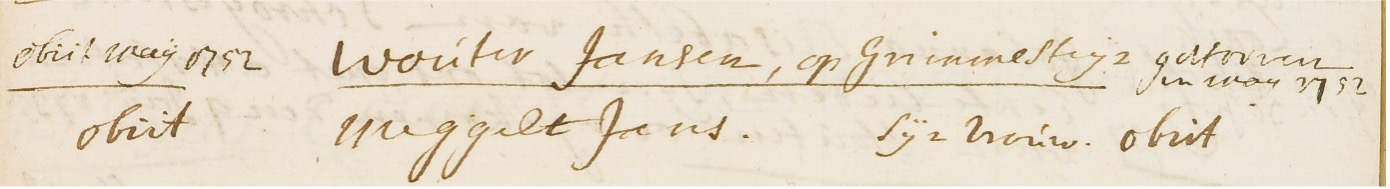 obiit maÿ 1752 Wouter Jansen, op Grimmesteÿn gestorven
in may 1752
obiit Meggelt Jans. Sÿn Vrouw. obiit